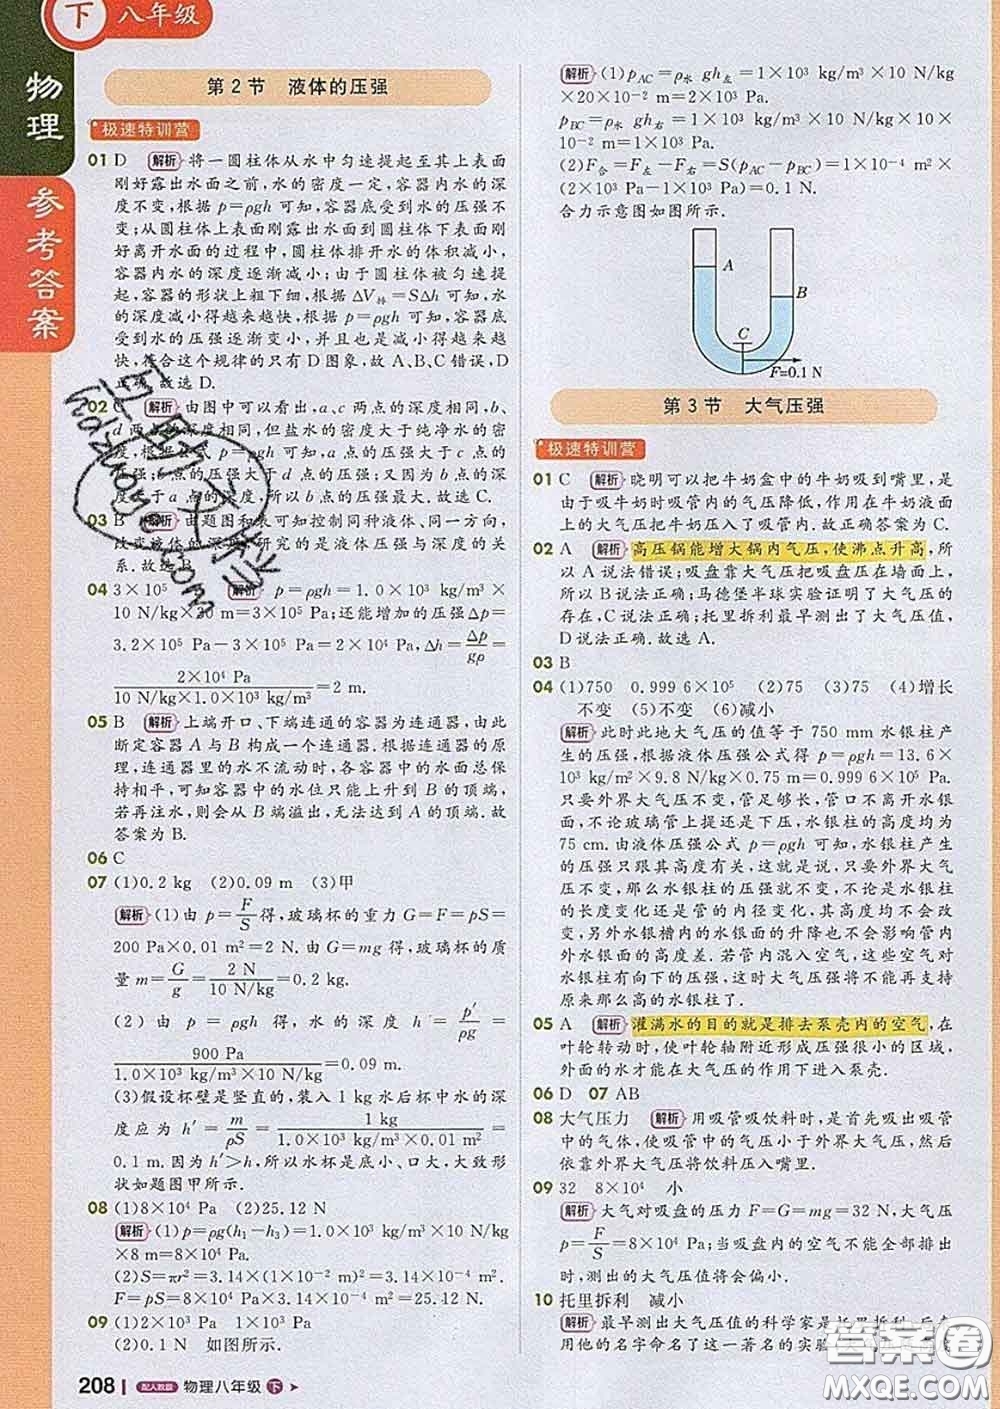 下 八年级
物理
参考答案
第2节 液体的压强
极速特训营
01 D 解析 将一圆柱体从水中匀速提起至其上表面
刚好露出水面之前,水的密度一定,容器内水的深
度不变,根据p=ρgh可知,容器底受到水的压强不
变;从圆柱体上表面刚露出水面到圆柱体下表面刚
好离开水面的过程中,圆柱体排开水的体积减小,
容器内水的深度逐渐减小;由于圆柱体被匀速提
起,容器的形状上粗下细,根据ΔV林=SΔh可知,水
的深度减小得越来越快,根据p=ρgh可知,容器底
受到水的压强逐渐变小,并且也是减小得越来越
快,符合这个规律的只有D图象,故A、B、C错误,D
正确.故选D.
02 C 解析 由图中可以看出,a、c两点的深度相同,b、
d两点的深度相同,但盐水的密度大于纯净水的密
度,根据公式p=ρgh可知:a点的压强大于c点的压
强;b点的压强大于d点的压强;又因为b点的深
度大于a点的深度,所以b点的压强最大.故选C.
03 B 解析 由题图和表可知控制同种液体、同一方向,
改变液体的深度,研究的是液体压强与深度的关
系.故选B.
04 3×10⁵ 解析 p=ρgh=1.0×10³ kg/m³×
10 N/kg×30 m=3×10⁵ Pa;还能增加的压强Δp=
3.2×10⁵ Pa-3×10⁵ Pa=2×10⁴ Pa,Δh=Δp/gρ=
2×10⁴ Pa/(10 N/kg×1.0×10³ kg/m³)=2 m.
05 B 解析 上端开口、下端连通的容器为连通器,由此
断定容器A与B构成一个连通器.根据连通器的原
理,连通器里的水不流动时,各容器中的水面总保
持相平,可知容器中的水位只能上升到B的顶端,
若再注水,则会从B端溢出,无法达到A的顶端.故
答案为B.
06 C
07 (1)0.2 kg (2)0.09 m (3)甲
解析 (1)由p=F/S得,玻璃杯的重力G=F=pS=
200 Pa×0.01 m²=2 N.由G=mg得,玻璃杯的质
量m=G/g=2 N/10 N/kg=0.2 kg.
(2)由p=ρgh得,水的深度h=p′/ρg=
900 Pa/(1.0×10³ kg/m³×10 N/kg)=0.09 m.
(3)假设杯壁是竖直的,装入1 kg水后杯中水的深
度应为h′=m/ρS=1 kg/(1.0×10³ kg/m³×0.01 m²)=
0.1 m.因为h′>h,所以水杯是底小、口大,大致形
状如题图甲所示.
08 (1)8×10⁴ Pa (2)25.12 N
解析 (1)p=ρg(h₁-h₃)=1.0×10³ kg/m³×10 N/kg
×8 m=8×10⁴ Pa.
(2)S=πr²=3.14×(1×10⁻² m)²=3.14×10⁻⁴ m².
F=pS=8×10⁴ Pa×3.14×10⁻⁴ m²=25.12 N.
09 (1)2×10³ Pa 1×10³ Pa
(2)0.1 N 如图所示.
解析 (1)pAC=ρ水gh左=1×10³ kg/m³×10 N/kg
×20×10⁻² m=2×10³ Pa.
pBC=ρ水gh右=1×10³ kg/m³×10 N/kg×10×
10⁻² m=1×10³ Pa.
(2)F合=F左-F右=S(pAC-pBC)=1×10⁻⁴ m²×
(2×10³ Pa-1×10³ Pa)=0.1 N.
合力示意图如图所示.
A
B
C
F=0.1 N
第3节 大气压强
极速特训营
01 C 解析 晓明可以把牛奶盒中的牛奶吸到嘴里,是
由于吸牛奶时吸管内的气压降低,作用在牛奶液面
上的大气压把牛奶压入了吸管内.故正确答案为C.
02 A 解析 高压锅能增大锅内气压,使沸点升高,所
以A说法错误;吸盘靠大气压把吸盘压在墙面上,
所以B说法正确;马德堡半球实验证明了大气压的
存在,C说法正确;托里拆利最早测出了大气压值,
D说法正确.故选A.
03 B
04 (1)750 0.999 6×10⁵ (2)75 (3)75 (4)增长
不变 (5)不变 (6)减小
解析 此时此地大气压的值等于750 mm水银柱产
生的压强,根据液体压强公式得p=ρgh=13.6×
10³ kg/m³×9.8 N/kg×0.75 m=0.999 6×10⁵ Pa.
只要外界大气压不变,管足够长,管口不离开水银
面,不论玻璃管上提还是下压,水银柱的高度均为
75 cm.由液体压强公式p=ρgh可知,水银柱产生
的压强只跟其高度有关,这就是说,只要外界大气
压不变,那么水银柱的压强就不变,不论是水银柱
的长度变化还是管的内径变化,其高度均不会改
变,另外水银槽内的水银面的升降也不会影响管内
外水银面的高度差.若管内混入空气,这些空气对
水银柱有向下的压强,这时大气压强将不能再支持
原来那么高的水银柱了.
05 A 解析 灌满水的目的就是排去泵壳内的空气,在
叶轮转动时,使叶轮轴附近形成压强很小的区域,
外面的水才能在大气压的作用下进入泵壳.
06 D 07 AB
08 大气压力 解析 用吸管吸饮料时,是首先吸出吸管
中的气体,使吸管中的气压小于外界大气压,然后
依靠外界大气压将饮料压入嘴里.
09 32 8×10⁴ 小
解析 大气对吸盘的压力F=G=mg=32 N,大气压
p=F/S=32 N/(4×10⁻⁴ m²)=8×10⁴ Pa;当吸盘内的空气不能全部排出
时,测出的大气压值将会偏小.
10 托里拆利 减小
解析 最早测出大气压值的科学家是托里拆利,后
用他的名字命名了这一著名的实验
208 配人教版 物理八年级 下
答案圈
MXQE.COM